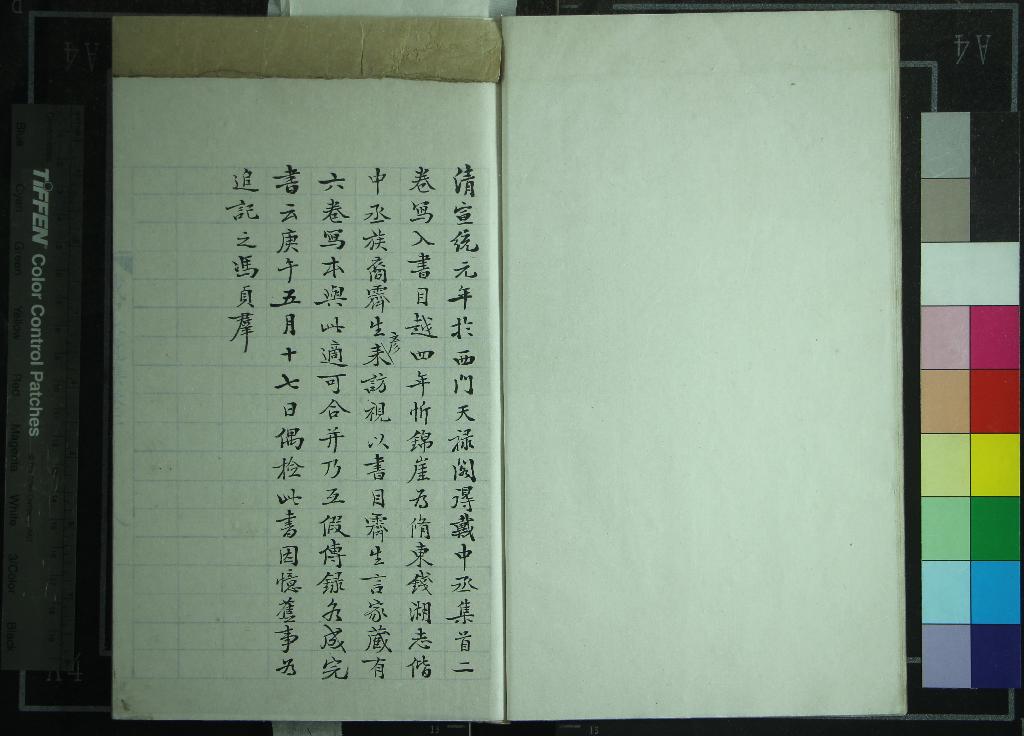 清宣統元年於西門天祿閣得戴中丞集首二
卷寫入書目越四年忻錦崖為脩東錢湖志偕
中丞族裔霽生彥來訪視以書目霽生言家藏有
六卷寫本與此適可合并乃互假傳錄各成完
書云庚午五月十七日偶檢此書因憶舊事為
追記之馮貞羣
TIFFEN Color Control Patches
A4
A4